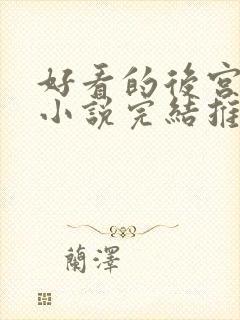 好看的後宮
小說完結推
蘭澤